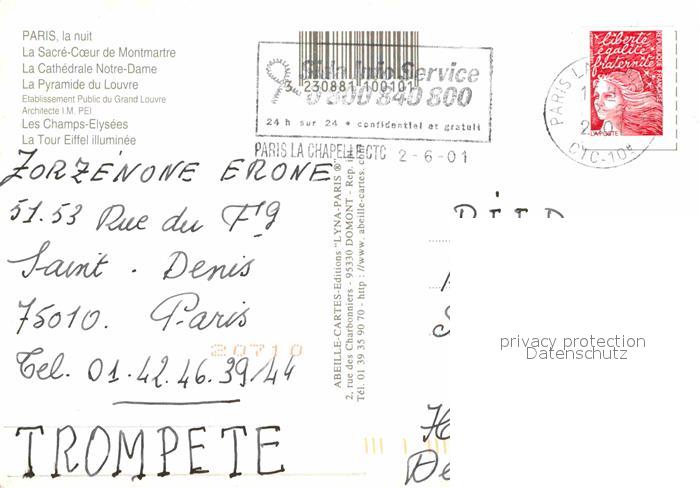 PARIS, la nuit
La Sacré-Cœur de Montmartre
La Cathédrale Notre-Dame
La Pyramide du Louvre
Etablissement Public du Grand Louvre
Architecte I.M. PEI
Les Champs-Elysées
La Tour Eiffel illuminée
Sida Info Service
3 230881 100101
0 800 840 800
24 h sur 24 • confidentiel et gratuit
PARIS LA CHAPELLE CTC 2-6-01
liberté
égalité
fraternité
LA POSTE
PARIS LA
CTC-10e
ZORZÉNONE ERONE
51.53 Rue du Fg
Saint. Denis
75010. Paris
20710
Tel. 01.42.46.39/44
TROMPETE
ABEILLE-CARTES-Editions "LYNA-PARIS"®
2, rue des Charbonniers - 95330 DOMONT - Rep.
Tél. 01 39 35 90 70 - http://www.abeille-cartes.com
privacy protection
Datenschutz
De